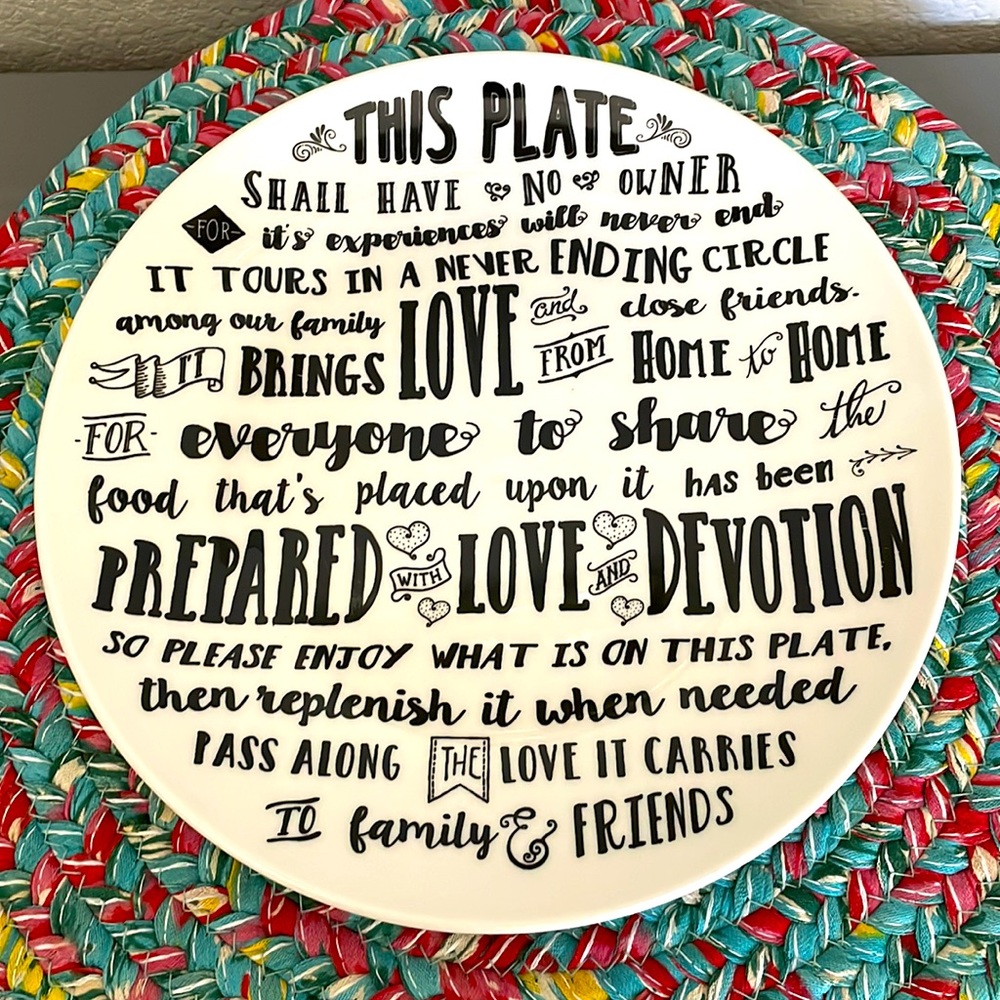 THIS PLATE
SHALL HAVE NO OWNER
-FOR- it's experiences will never end
IT TOURS IN A NEVER ENDING CIRCLE
among our family LOVE and close friends.
IT BRINGS FROM HOME to HOME
-FOR- everyone to share the
food that's placed upon it has been
PREPARED WITH LOVE AND DEVOTION
SO PLEASE ENJOY WHAT IS ON THIS PLATE,
then replenish it when needed
PASS ALONG THE LOVE IT CARRIES
TO family & FRIENDS